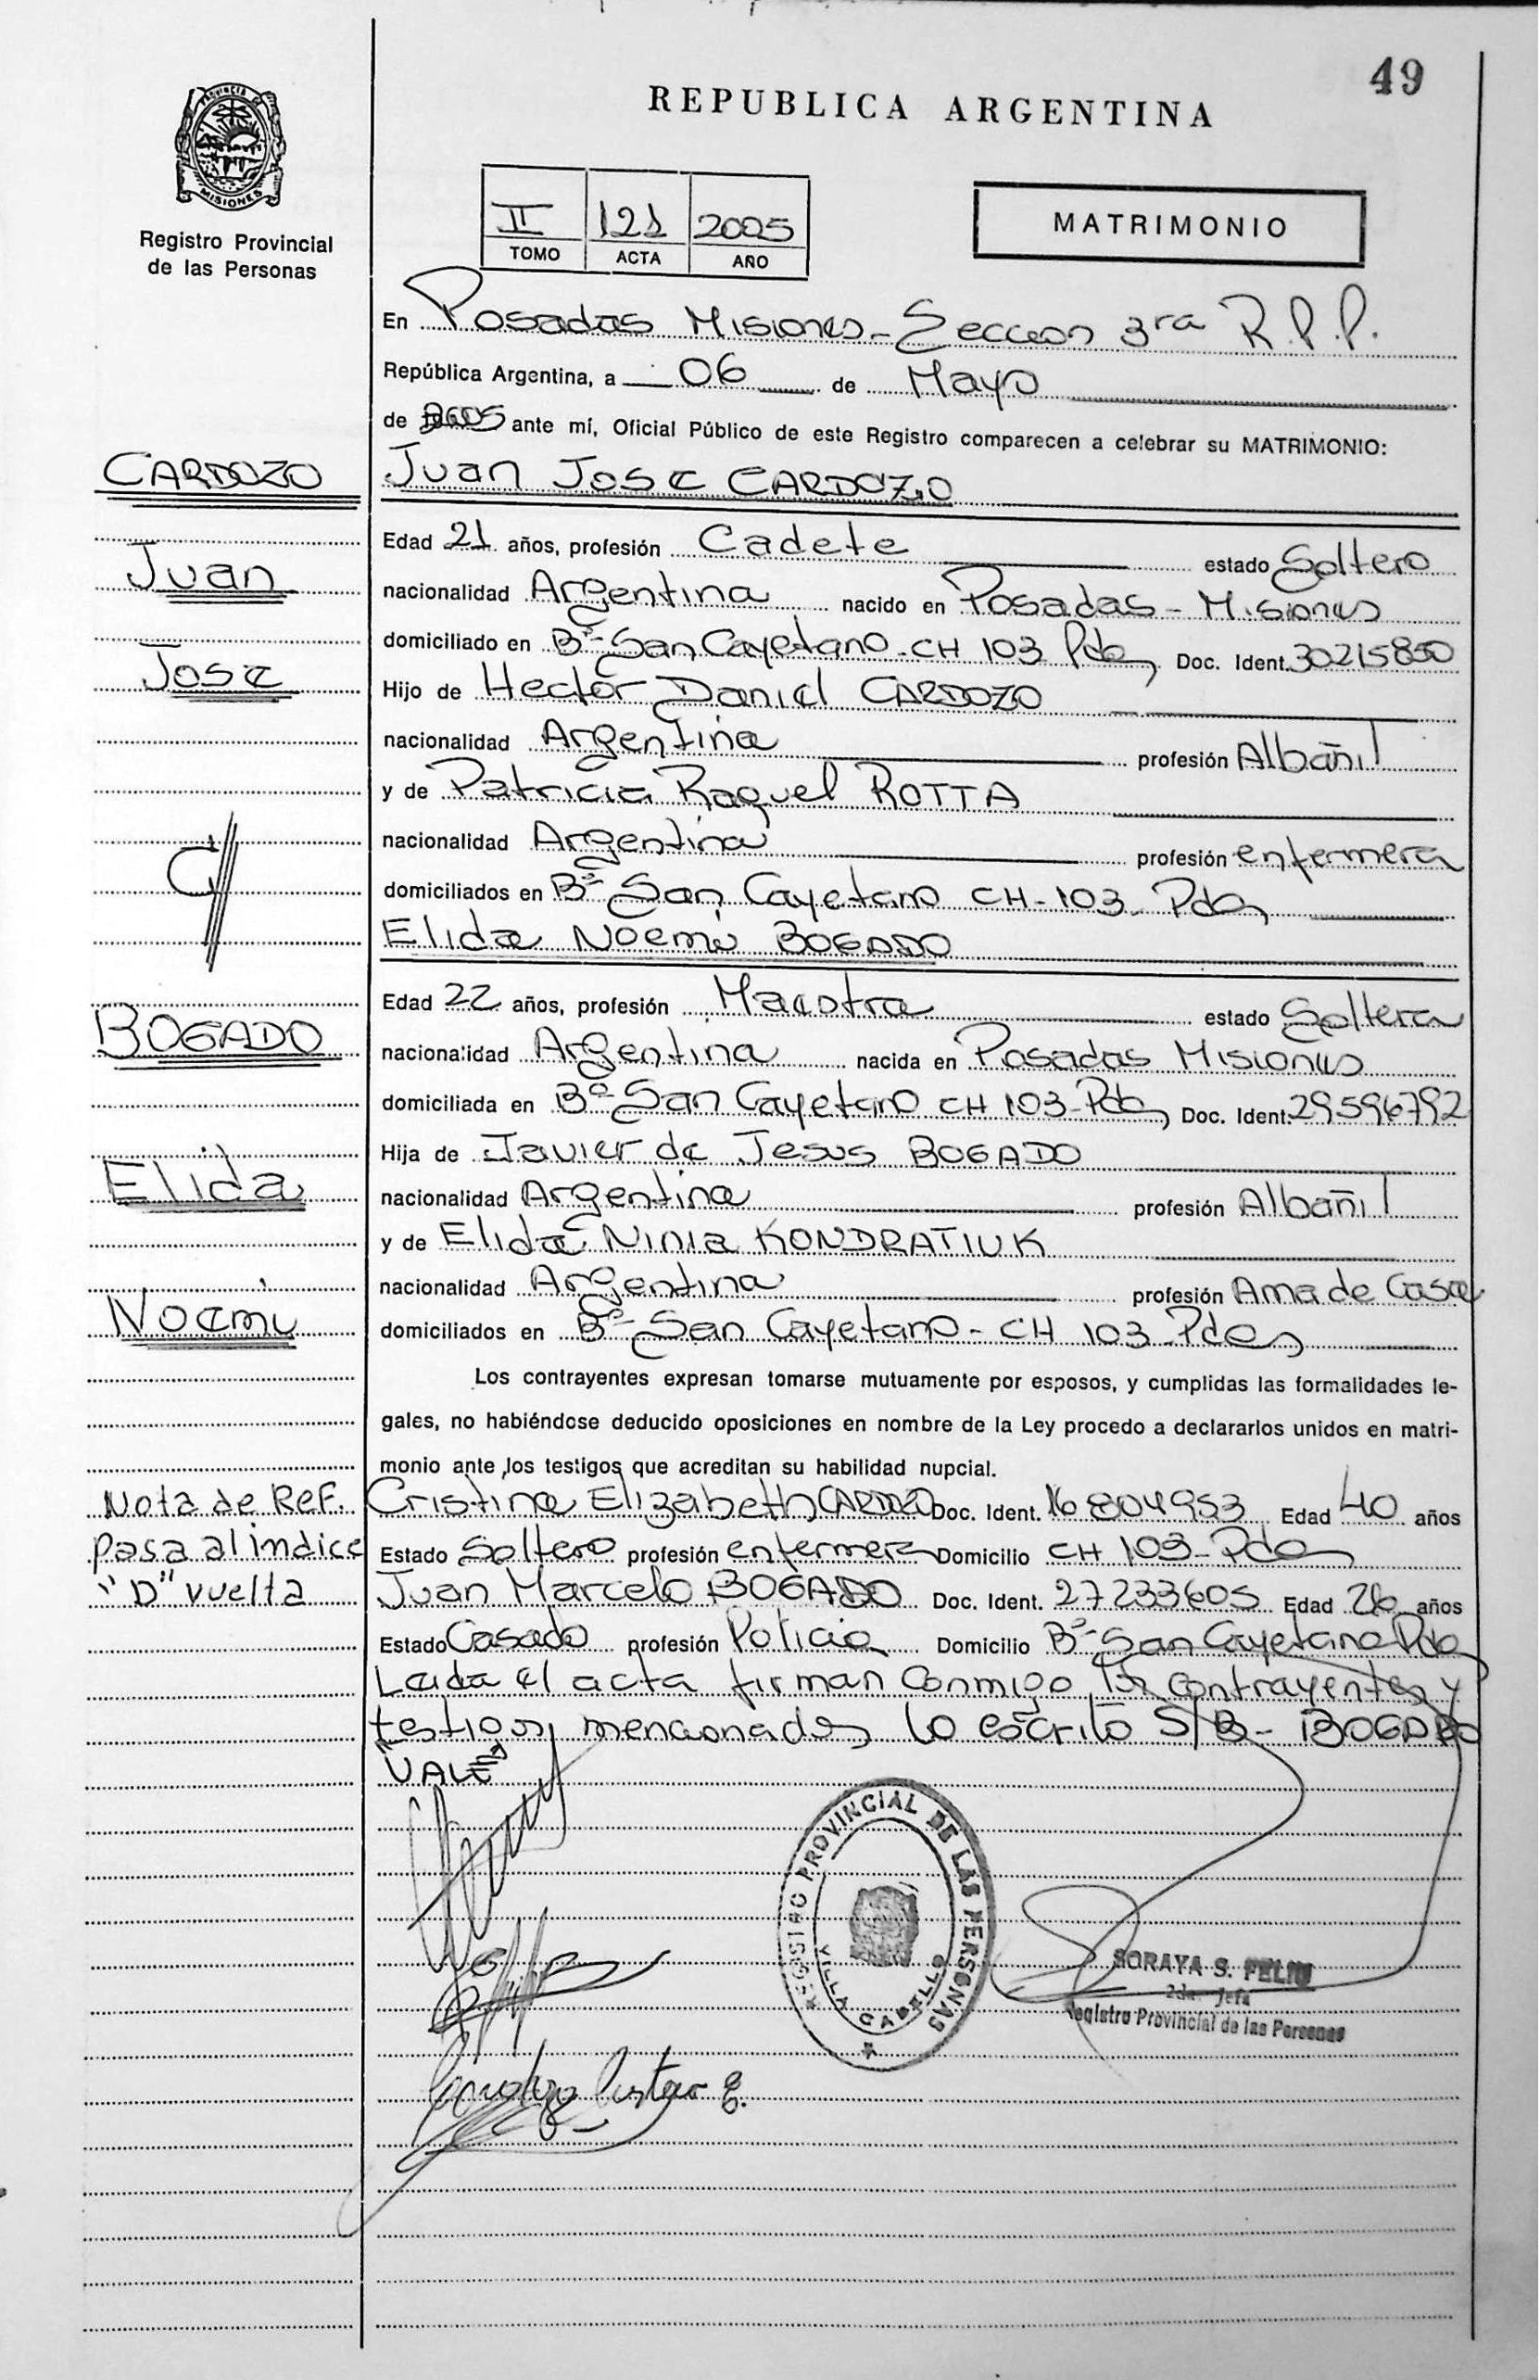 49
REPUBLICA ARGENTINA
PROVINCIA DE
MISIONES
Registro Provincial
de las Personas
II 121 2005
TOMO ACTA AÑO
MATRIMONIO
En Posadas Misiones - Seccion 3ra R.P.P.
República Argentina, a 06 de Mayo
de 2005 ante mí, Oficial Público de este Registro comparecen a celebrar su MATRIMONIO:
CARDOZO
Juan Jose CARDOZO
Edad 21 años, profesión Cadete estado Soltero
Juan
nacionalidad Argentina nacido en Posadas - Misiones
domiciliado en Bº San Cayetano - CH 103 Pdas Doc. Ident. 30215850
Jose
Hijo de Hector Daniel CARDOZO
nacionalidad Argentina profesión Albañil
y de Patricia Raquel ROTTA
nacionalidad Argentina profesión enfermera
C/
domiciliados en Bº San Cayetano CH - 103 - Pdas
Elida Noemi BOGADO
Edad 22 años, profesión Maestra estado Soltera
BOGADO
nacionalidad Argentina nacida en Posadas Misiones
domiciliada en Bº San Cayetano CH 103 - Pdas Doc. Ident. 29596792
Hija de Javier de Jesus BOGADO
Elida
nacionalidad Argentina profesión Albañil
y de Elida Ninia KONDRATIUK
nacionalidad Argentina profesión Ama de Casa
Noemi
domiciliados en Bº San Cayetano - CH 103 - Pdas
Los contrayentes expresan tomarse mutuamente por esposos, y cumplidas las formalidades le-
gales, no habiéndose deducido oposiciones en nombre de la Ley procedo a declararlos unidos en matri-
monio ante los testigos que acreditan su habilidad nupcial.
Nota de Ref.
Cristina Elizabeth CARDOZO Doc. Ident. 16804953 Edad 40 años
pasa al indice
Estado Soltero profesión enfermera Domicilio CH 103 - Pdas
"D" vuelta
Juan Marcelo BOGADO Doc. Ident. 27233605 Edad 26 años
Estado Casado profesión Policia Domicilio Bº San Cayetano Pdas
Leida el acta firman conmigo los contrayentes y
testigos mencionados lo escrito S/B - BOGADO
VALE
REGISTRO PROVINCIAL DE LAS PERSONAS
VILLA CABELLO
SORAYA S. FELIU
2da. Jefa
Registro Provincial de las Personas